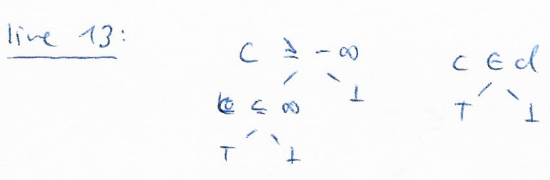 line 13:
C ≥ -∞
C ∈ d
C ≤ ∞ ⊥
⊤ ⊥
⊤ ⊥